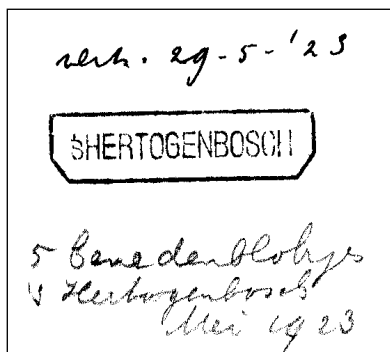 verk. 29-5-'23
'SHERTOGENBOSCH
5 Benedenblokjes
's Hertogenbosch
Mei 1923